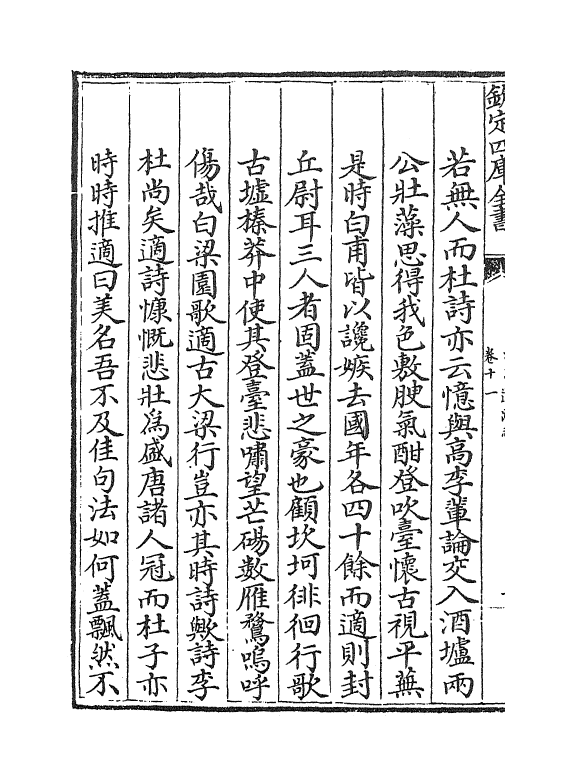 欽定四庫全書
卷十一
若無人而杜詩亦云憶與高李輩論交入酒壚兩
公壯藻思得我色敷腴氣酣登吹臺懷古視平蕪
是時白甫皆以讒嫉去國年各四十餘而適則封
丘尉耳三人者固蓋世之豪也顧坎坷徘徊行歌
古墟榛莽中使其登臺悲嘯望芒碭數雁鶩嗚呼
傷哉白梁園歌適古大梁行豈亦其時詩歟詩李
杜尚矣適詩慷慨悲壯為盛唐諸人冠而杜子亦
時時推適曰美名吾不及佳句法如何蓋飄然不